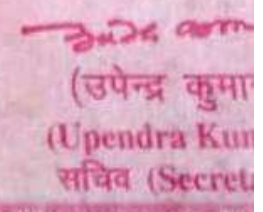 (उपेन्द्र कुमा
(Upendra Kun
सचिव (Secreta